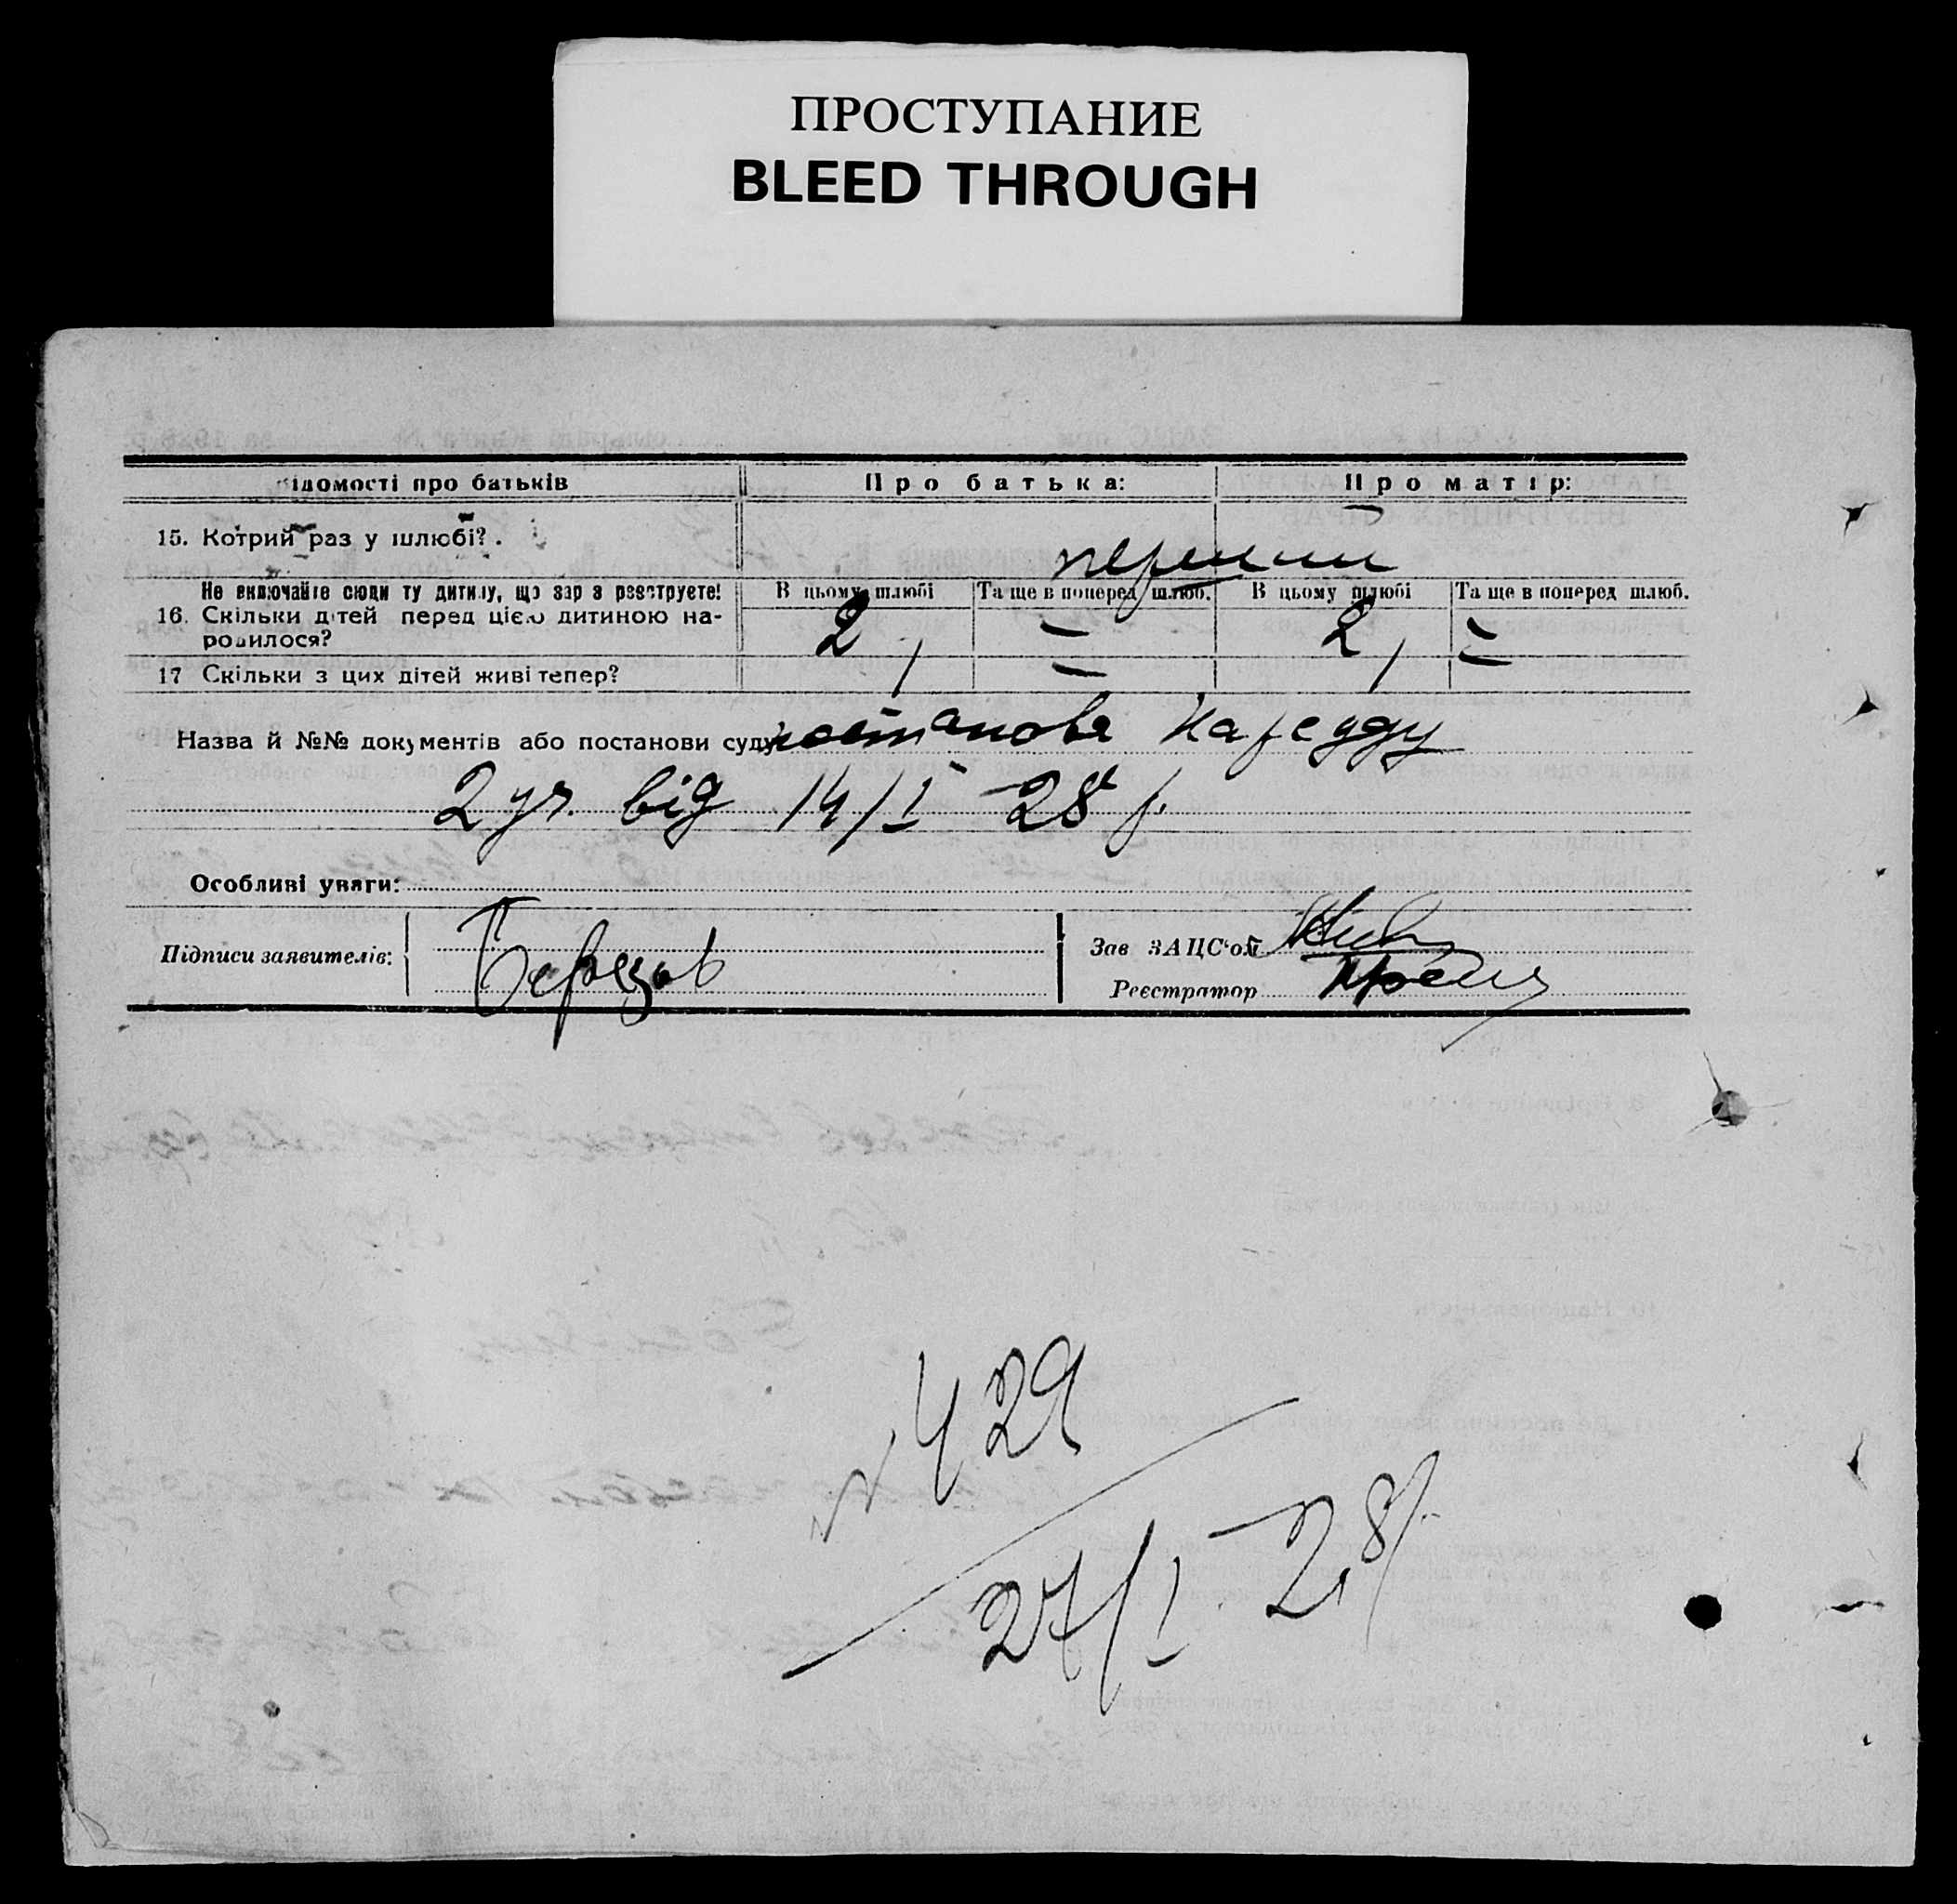 ПРОСТУПАНИЕ
BLEED THROUGH
Відомості про батьків Про батька: Про матір:
15. Котрий раз у шлюбі? . перший
Не включайте сюди ту дитину, що зараз реєструєте! В цьому шлюбі Та ще в поперед шлюб. В цьому шлюбі Та ще в поперед шлюб.
16. Скільки дітей перед цією дитиною на-
родилося? 2 — 2 —
17 Скільки з цих дітей живі тепер? , — , —
Назва й №№ документів або постанови суду постанова Нарсуду
2 уч. від 14/I 28 р.
Особливі уваги:
Підписи заявителів: Зав ЗАЦС'ом
Реєстратор
№ 429
27/I - 28 р.